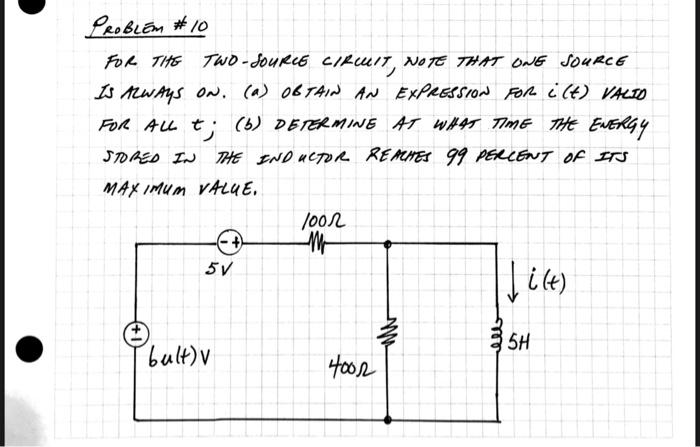 PROBLEM #10
FOR THE TWO-SOURCE CIRCUIT, NOTE THAT ONE SOURCE
IS ALWAYS ON. (a) OBTAIN AN EXPRESSION FOR i(t) VALID
FOR ALL t; (b) DETERMINE AT WHAT TIME THE ENERGY
STORED IN THE INDUCTOR REACHES 99 PERCENT OF ITS
MAXIMUM VALUE.
100Ω
- +
5V
i(t)
+
-
6u(t) V
400Ω
5H